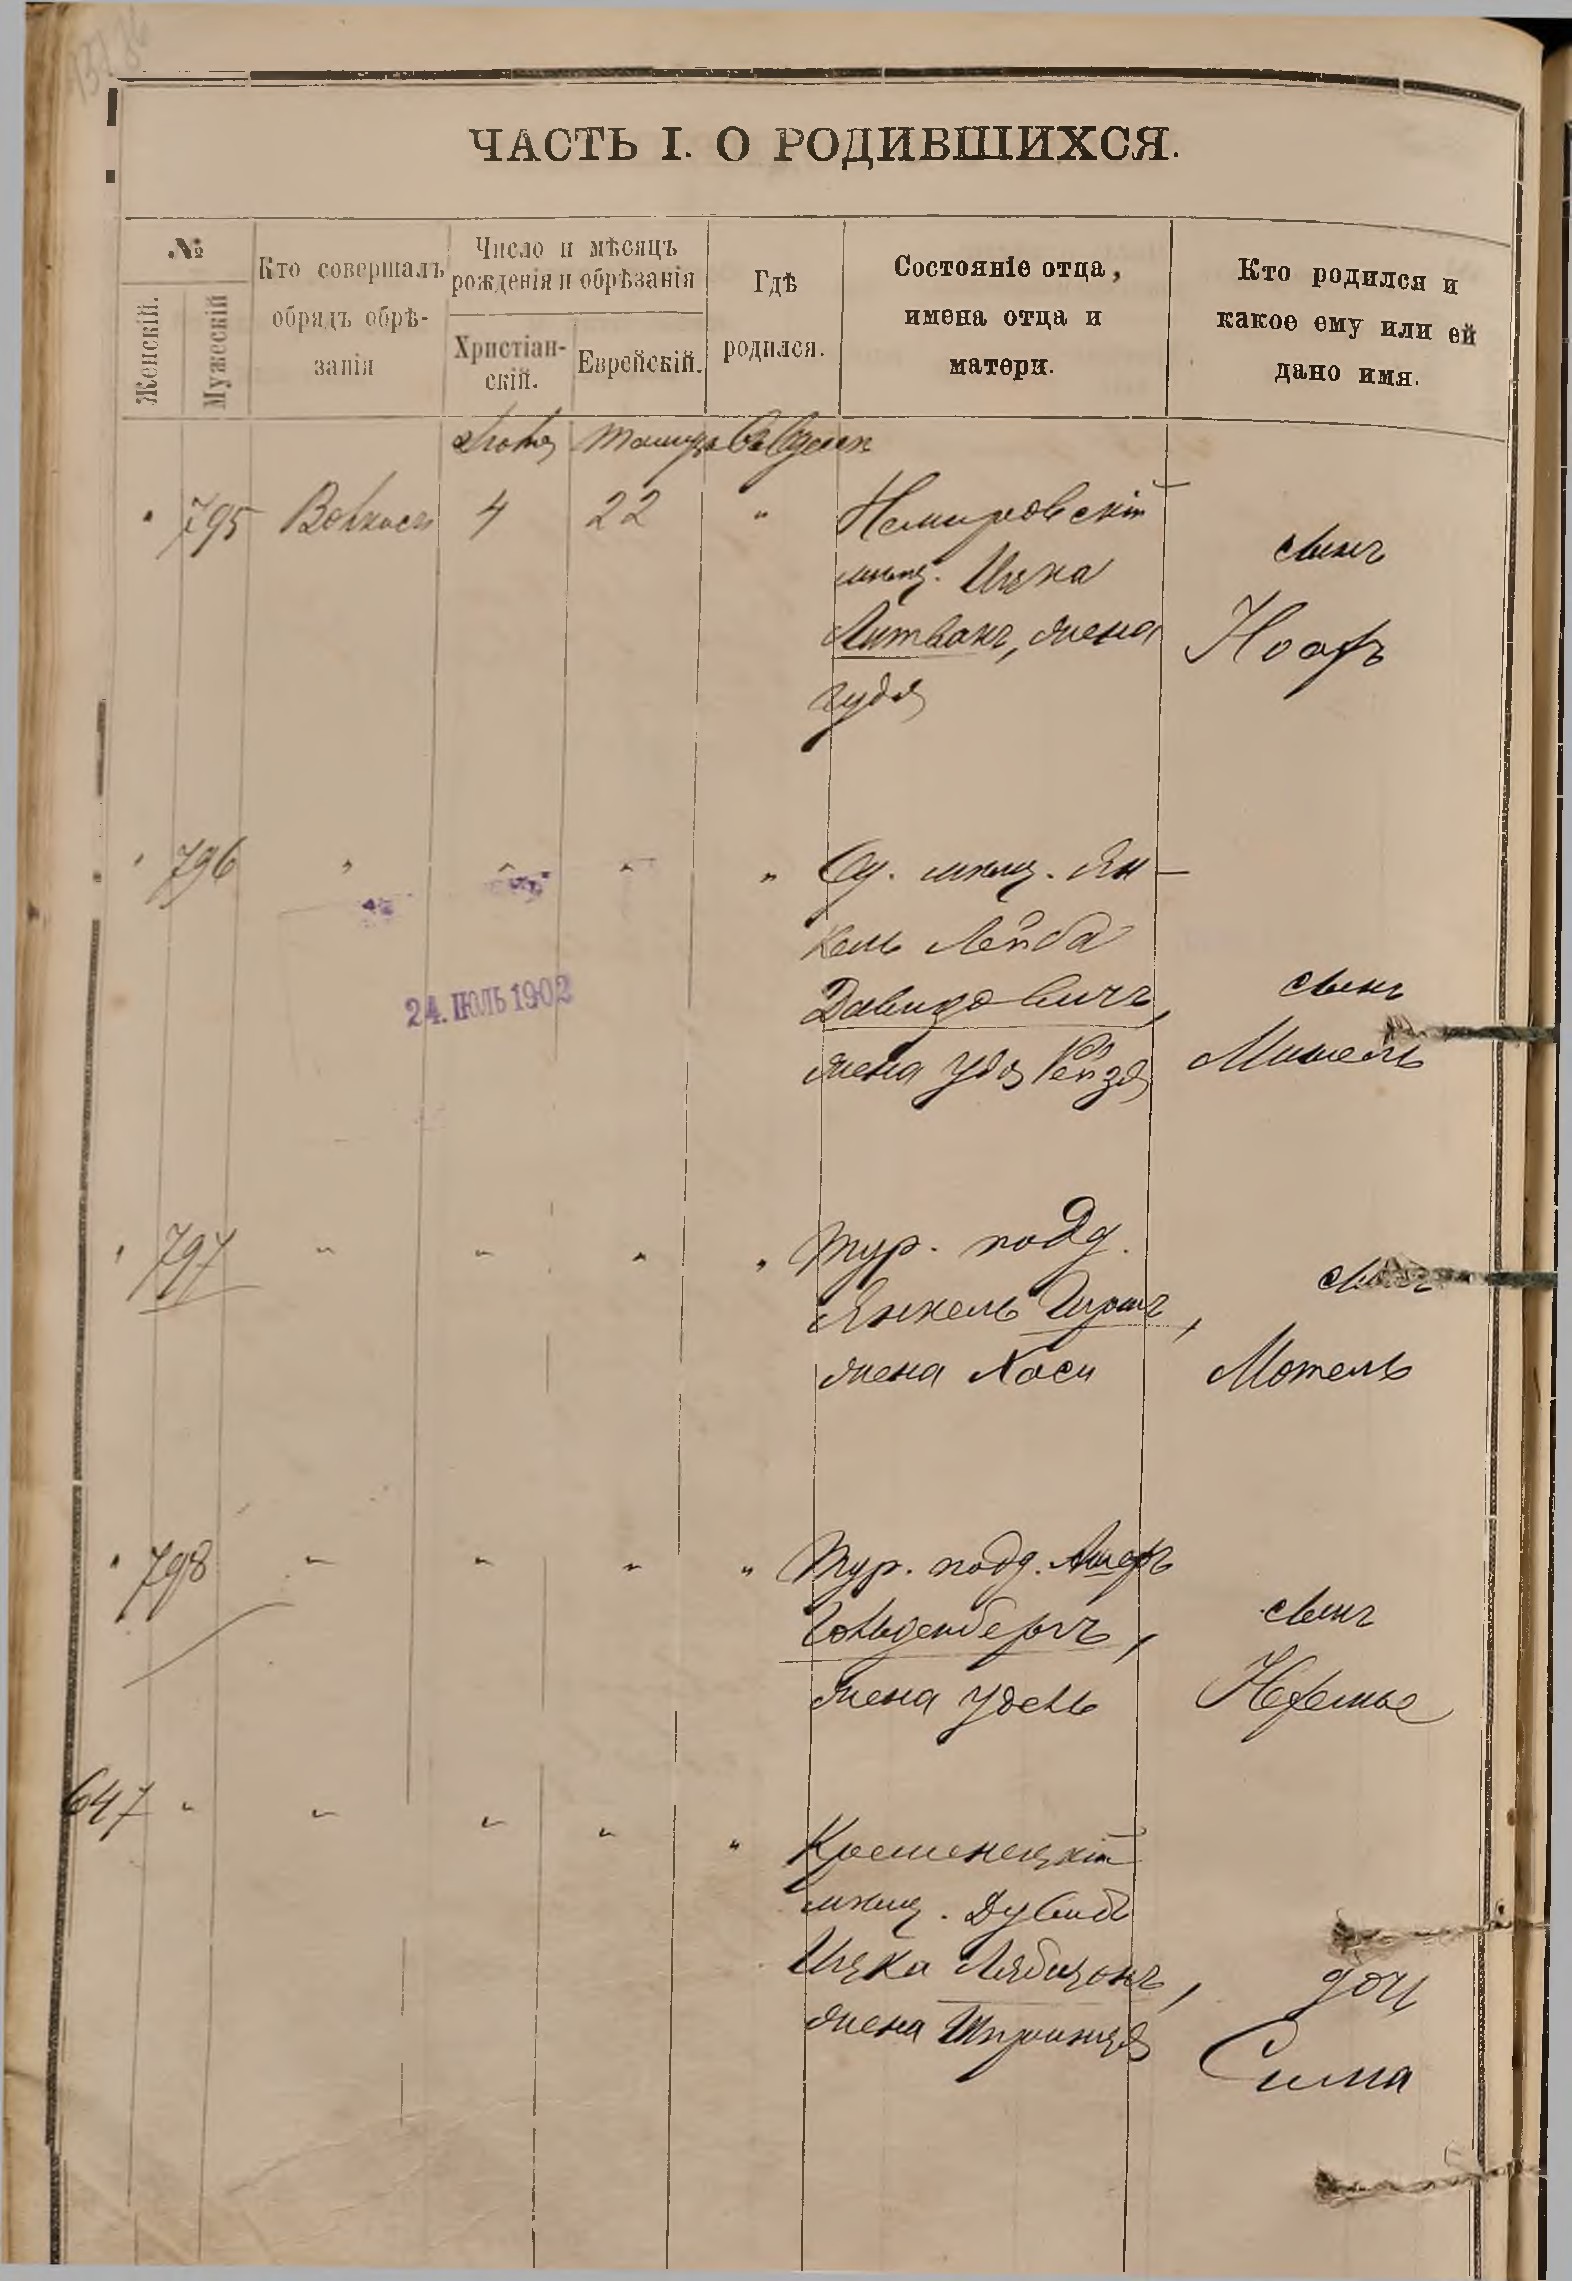 ЧАСТЬ I. О РОДИВШИХСЯ.
№
Женскій.
Мужескій
Кто совершалъ
обрядъ обрѣ-
занія
Число и мѣсяцъ
рожденія и обрѣзанія
Христіан-
скій.
Еврейскій.
Гдѣ
родился.
Состояніе отца,
имена отца и
матери.
Кто родился и
какое ему или ей
дано имя.
Въ Одессѣ
" 795 4 22 " Немировскій
мѣщ. Ицка
Литванъ, жена
Гудя
сынъ
Ноахъ
" 796 " " " " Од. мѣщ. Ян-
кель Лейба
Давидовичъ,
жена Удя Рейзя
сынъ
Мишель
24. ІЮЛЬ 1902
" 797 " " " " Тур. подд.
Янкель Гиршъ,
жена Хася
сынъ
Мотель
" 798 " " " " Тур. подд. Ашеръ
Гольденбергъ,
жена Удель
сынъ
Нехемье
647 " " " " " Кременецкій
мѣщ. Дувидъ
Ицка Лябцонъ,
жена Шпринця
дочь
Сима